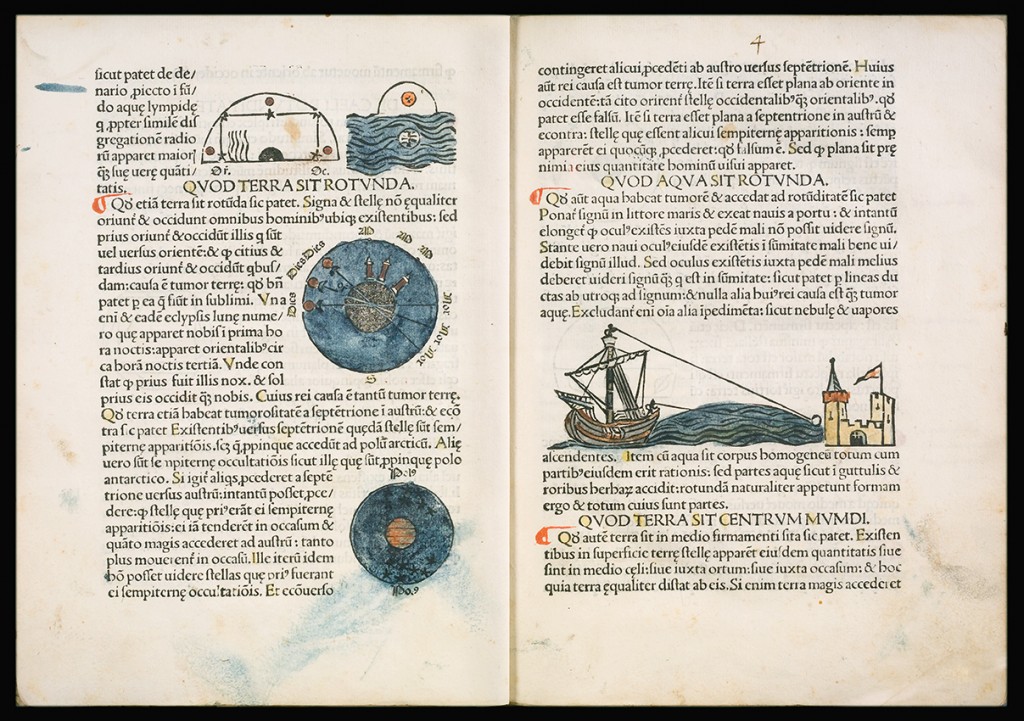 sicut patet de de/
nario ,piecto ī fū/
do aquę lympidę
q ,ppter similē dis
gregationē radio
rū apparet maior
q̄ƺ suę uerę quāti/
tatis.
Or. Oc.
QVOD TERRA SIT ROTVNDA.
Qđ etiā terra sit rotūda sic patet. Signa & stellę nō ęqualiter
oriunt̄ & occidunt omnibus hominibꝰubiqƺ existentibus: sed
prius oriunt̄ & occidūt illis q sūt
uel uersus orientē: & ꝙ citius &
tardius oriunt̄ & occidūt qbus/
dam: causa ē tumor terrę: qđ bn̄
patet p ea q̄ fiūt in sublimi. Vna
eni & eadē eclypsis lunę nume/
ro quę apparet nobis ī prima ho
ra noctis: apparet orientalibꝰ cir
ca horā noctis tertiā. Vnde con
stat ꝙ prius fuit illis nox. & sol
Dies Dies Dies
AD AD AD
Nox Nox Nox
S
prius eis occidit q̄ƺ nobis. Cuius rei causa ē tantū tumor terrę.
Qđ terra etiā habeat tumorositatē a septētrione ī austrū: & ecō
tra sic patet Existentibꝰ uersus septētrionē quędā stellę sūt sem/
piternę apparitiōis. scƺ q̄ ,ppinque accedūt ad polū arcticū. Alię
uero sūt sempiternę occultatiōis sicut illę quę sūt ,ppinquę polo
antarctico. Si igit̄ aliqs ,pcederet a septē
trione uersus austrū: intantū posset ,pce/
dere: ꝙ stellę quę priꝰ erāt ei sempiternę
apparitiōis: ei iā tenderēt in occasum &
quāto magis accederet ad austrū : tanto
plus mouerent̄ in occasū. Ille iterū idem
hō posset uidere stellas quę priꝰ fuerant
ei sempiternę occultatiōis. Et ecōuerso
Polꝰ
4
contingeret alicui ,pcedēti ab austro uersus septētrionē. Huius
aūt rei causa est tumor terrę. Itē si terra esset plana ab oriente in
occidentē: tā cito orirent̄ stellę occidentalibꝰ q̄ƺ orientalibꝰ. qđ
patet esse falsū. Itē si terra esset plana a septentrione in austrū &
econtra: stellę quę essent alicui sempiternę apparitionis : semp
apparerēt ei quocūqƺ ,pcederet: qđ falsum ē. Sed ꝙ plana sit prę
nimia eius quantitate hominū uisui apparet.
QVOD AQVA SIT ROTVNDA.
Qđ aūt aqua habeat tumorē & accedat ad rotūditatē sic patet
Ponat̄ signū in littore maris & exeat nauis a portu : & intantū
elonget̄ ꝙ oculꝰ existēs iuxta pedē mali nō possit uidere signū.
Stante uero naui oculꝰ eiusdē existētis ī sūmitate mali bene ui/
debit signū illud. Sed oculus existētis iuxta pedē mali melius
deberet uideri signū q̄ƺ q est in sūmitate: sicut patet p lineas du
ctas ab utroqƺ ad signum: & nulla alia huiꝰ rei causa est q̄ƺ tumor
aquę. Excludant̄ eni oīa alia īpedimēta: sicut nebulę & uapores
ascendentes. Item cū aqua sit corpus homogeneū totum cum
partibꝰ eiusdem erit rationis: sed partes aquę sicut ī guttulis &
roribus herbaꝝ accidit: rotundā naturaliter appetunt formam
ergo & totum cuius sunt partes.
QVOD TERRA SIT CENTRVM MVMDI.
Qđ autē terra sit in medio firmamenti sita sic patet. Existen
tibus in superficie terrę stellę apparēt eiusdem quantitatis siue
sint in medio cęli: siue iuxta ortum: siue iuxta occasum: & hoc
quia terra ęqualiter distat ab eis. Si enim terra magis accederet